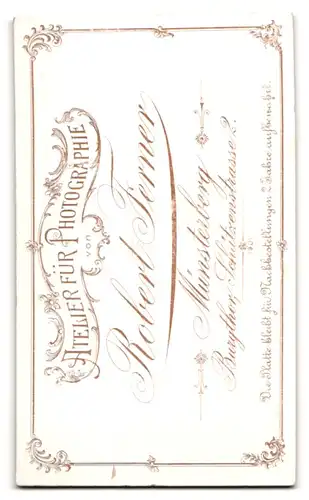 ATELIER FÜR PHOTOGRAPHIE
von
Robert Ferner
Münsterberg
Burgberg, Schützenstrasse 2.
Die Platte bleibt für Nachbestellungen 2 Jahre aufbewahrt.